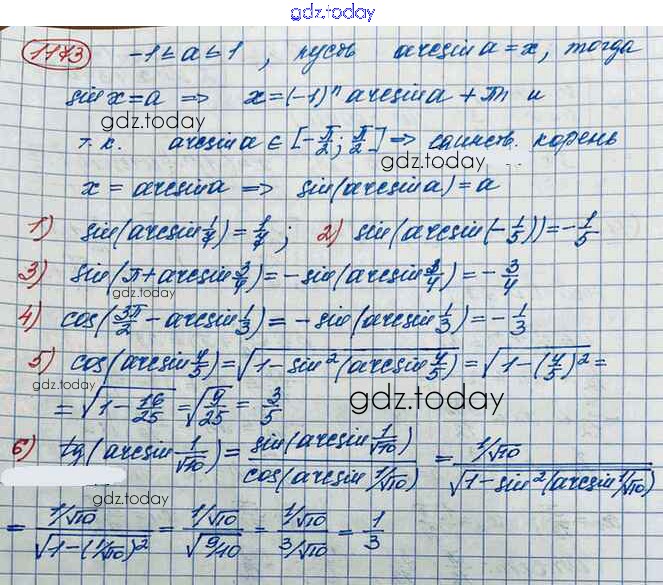 gdz.today
1173 -1 ≤ a ≤ 1, пусть arcsin a = x, тогда
sin x = a => x = (-1)ⁿ arcsin a + πn и
gdz.today
т.к. arcsin a ∈ [-π/2; π/2] => единств. корень
gdz.today
x = arcsin a => sin(arcsin a) = a
1) sin(arcsin 1/4) = 1/4; 2) sin(arcsin(-1/5)) = -1/5
3) sin(π + arcsin 3/4) = -sin(arcsin 3/4) = -3/4
gdz.today
4) cos(3π/2 - arcsin 1/3) = -sin(arcsin 1/3) = -1/3
5) cos(arcsin 4/5) = √(1 - sin²(arcsin 4/5)) = √(1 - (4/5)²) =
gdz.today
= √(1 - 16/25) = √(9/25) = 3/5
gdz.today
6) tg(arcsin 1/√10) = sin(arcsin 1/√10)/cos(arcsin 1/√10) = (1/√10)/√(1 - sin²(arcsin 1/√10))
gdz.today
= (1/√10)/√(1 - (1/√10)²) = (1/√10)/√(9/10) = (1/√10)/(3/√10) = 1/3